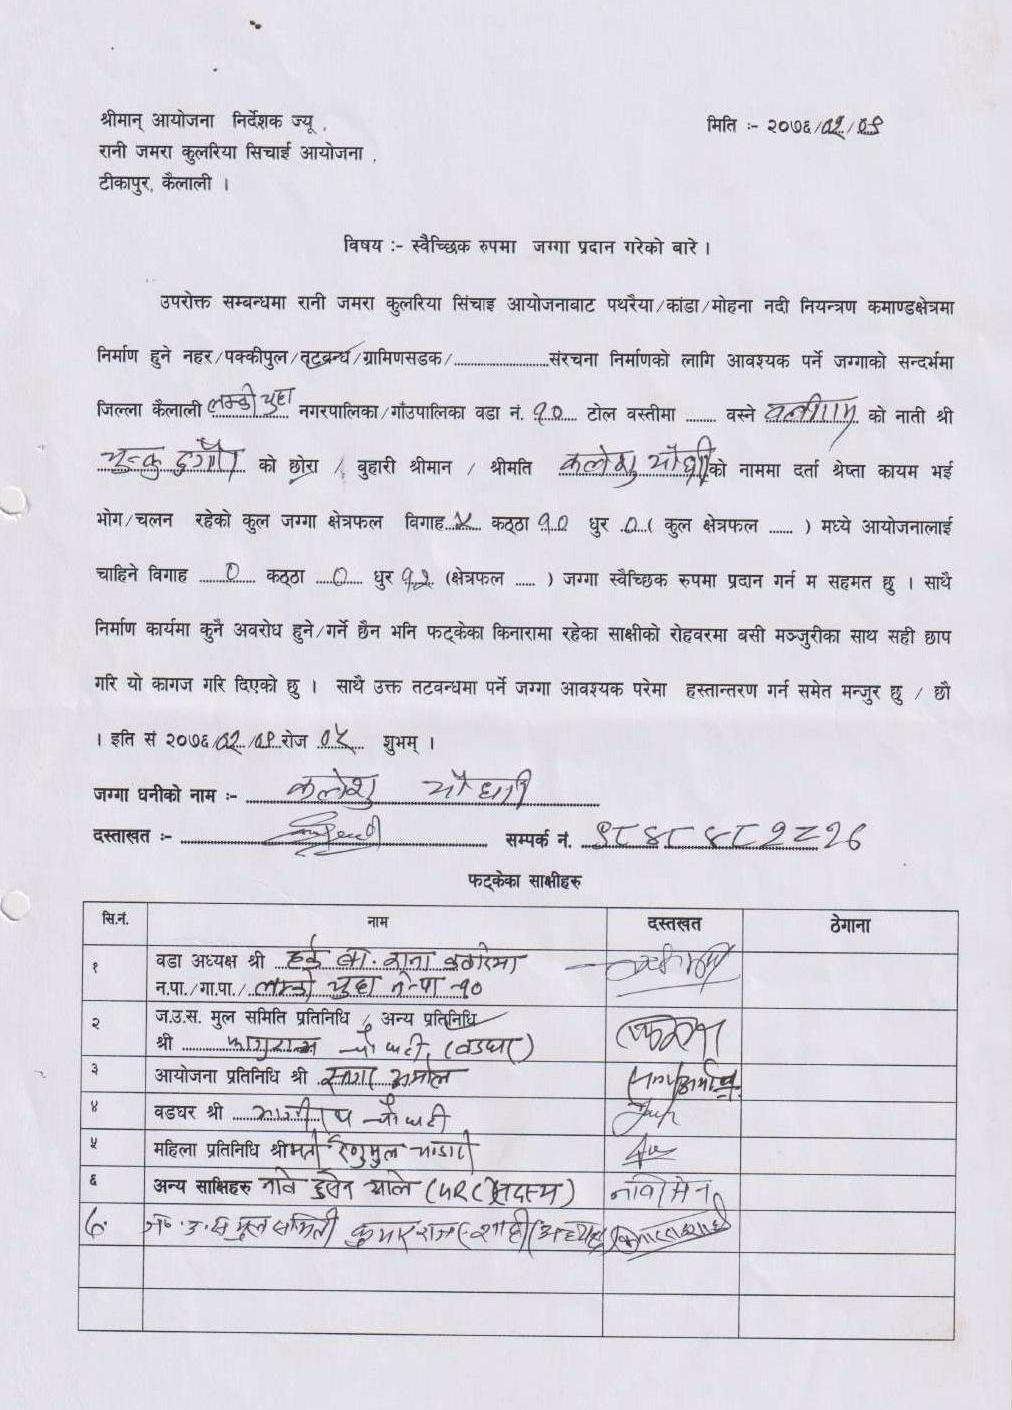 श्रीमान् आयोजना निर्देशक ज्यू ,
मिति :- २०७६/०२/०९
रानी जमरा कुलरिया सिचाई आयोजना ,
टीकापुर, कैलाली ।
विषय :- स्वैच्छिक रुपमा जग्गा प्रदान गरेको बारे ।
उपरोक्त सम्बन्धमा रानी जमरा कुलरिया सिंचाइ आयोजनाबाट पथरैया/कांडा/मोहना नदी नियन्त्रण कमाण्डक्षेत्रमा
निर्माण हुने नहर/पक्कीपुल/तटबन्ध/ग्रामिणसडक/........................संरचना निर्माणको लागि आवश्यक पर्ने जग्गाको सन्दर्भमा
जिल्ला कैलाली लम्की चुहा नगरपालिका/गाँउपालिका वडा नं. १० टोल वस्तीमा ....... वस्ने को नाती श्री
को छोरा / बुहारी श्रीमान / श्रीमति कलेशु चौधरी को नाममा दर्ता श्रेष्ता कायम भई
भोग/चलन रहेको कुल जग्गा क्षेत्रफल विगाह कठ्ठा १० धुर ०( कुल क्षेत्रफल ...... ) मध्ये आयोजनालाई
चाहिने विगाह ० कठ्ठा ० धुर १२ (क्षेत्रफल ..... ) जग्गा स्वैच्छिक रुपमा प्रदान गर्न म सहमत छु । साथै
निर्माण कार्यमा कुनै अवरोध हुने/गर्ने छैन भनि फट्केका किनारामा रहेका साक्षीको रोहवरमा बसी मञ्जुरीका साथ सही छाप
गरि यो कागज गरि दिएको छु । साथै उक्त तटवन्धमा पर्ने जग्गा आवश्यक परेमा हस्तान्तरण गर्न समेत मन्जुर छु / छौ
। इति सं २०७६/०२/०९ रोज ०५ शुभम् ।
जग्गा धनीको नाम :- कलेशु चौधरी
दस्ताखत :-
सम्पर्क नं.
फट्केका साक्षीहरु
सि.नं. नाम दस्तखत ठेगाना
१ वडा अध्यक्ष श्री
न.पा./गा.पा./ लम्की चुहा न.पा १०
२ ज.उ.स. मुल समिति प्रतिनिधि / अन्य प्रतिनिधि
श्री चौधरी (वडघर)
३ आयोजना प्रतिनिधि श्री
४ वडघर श्री चौधरी
५ महिला प्रतिनिधि श्रीमती
६ अन्य साक्षिहरु सदस्य)
ज. उ. स मुल समिती